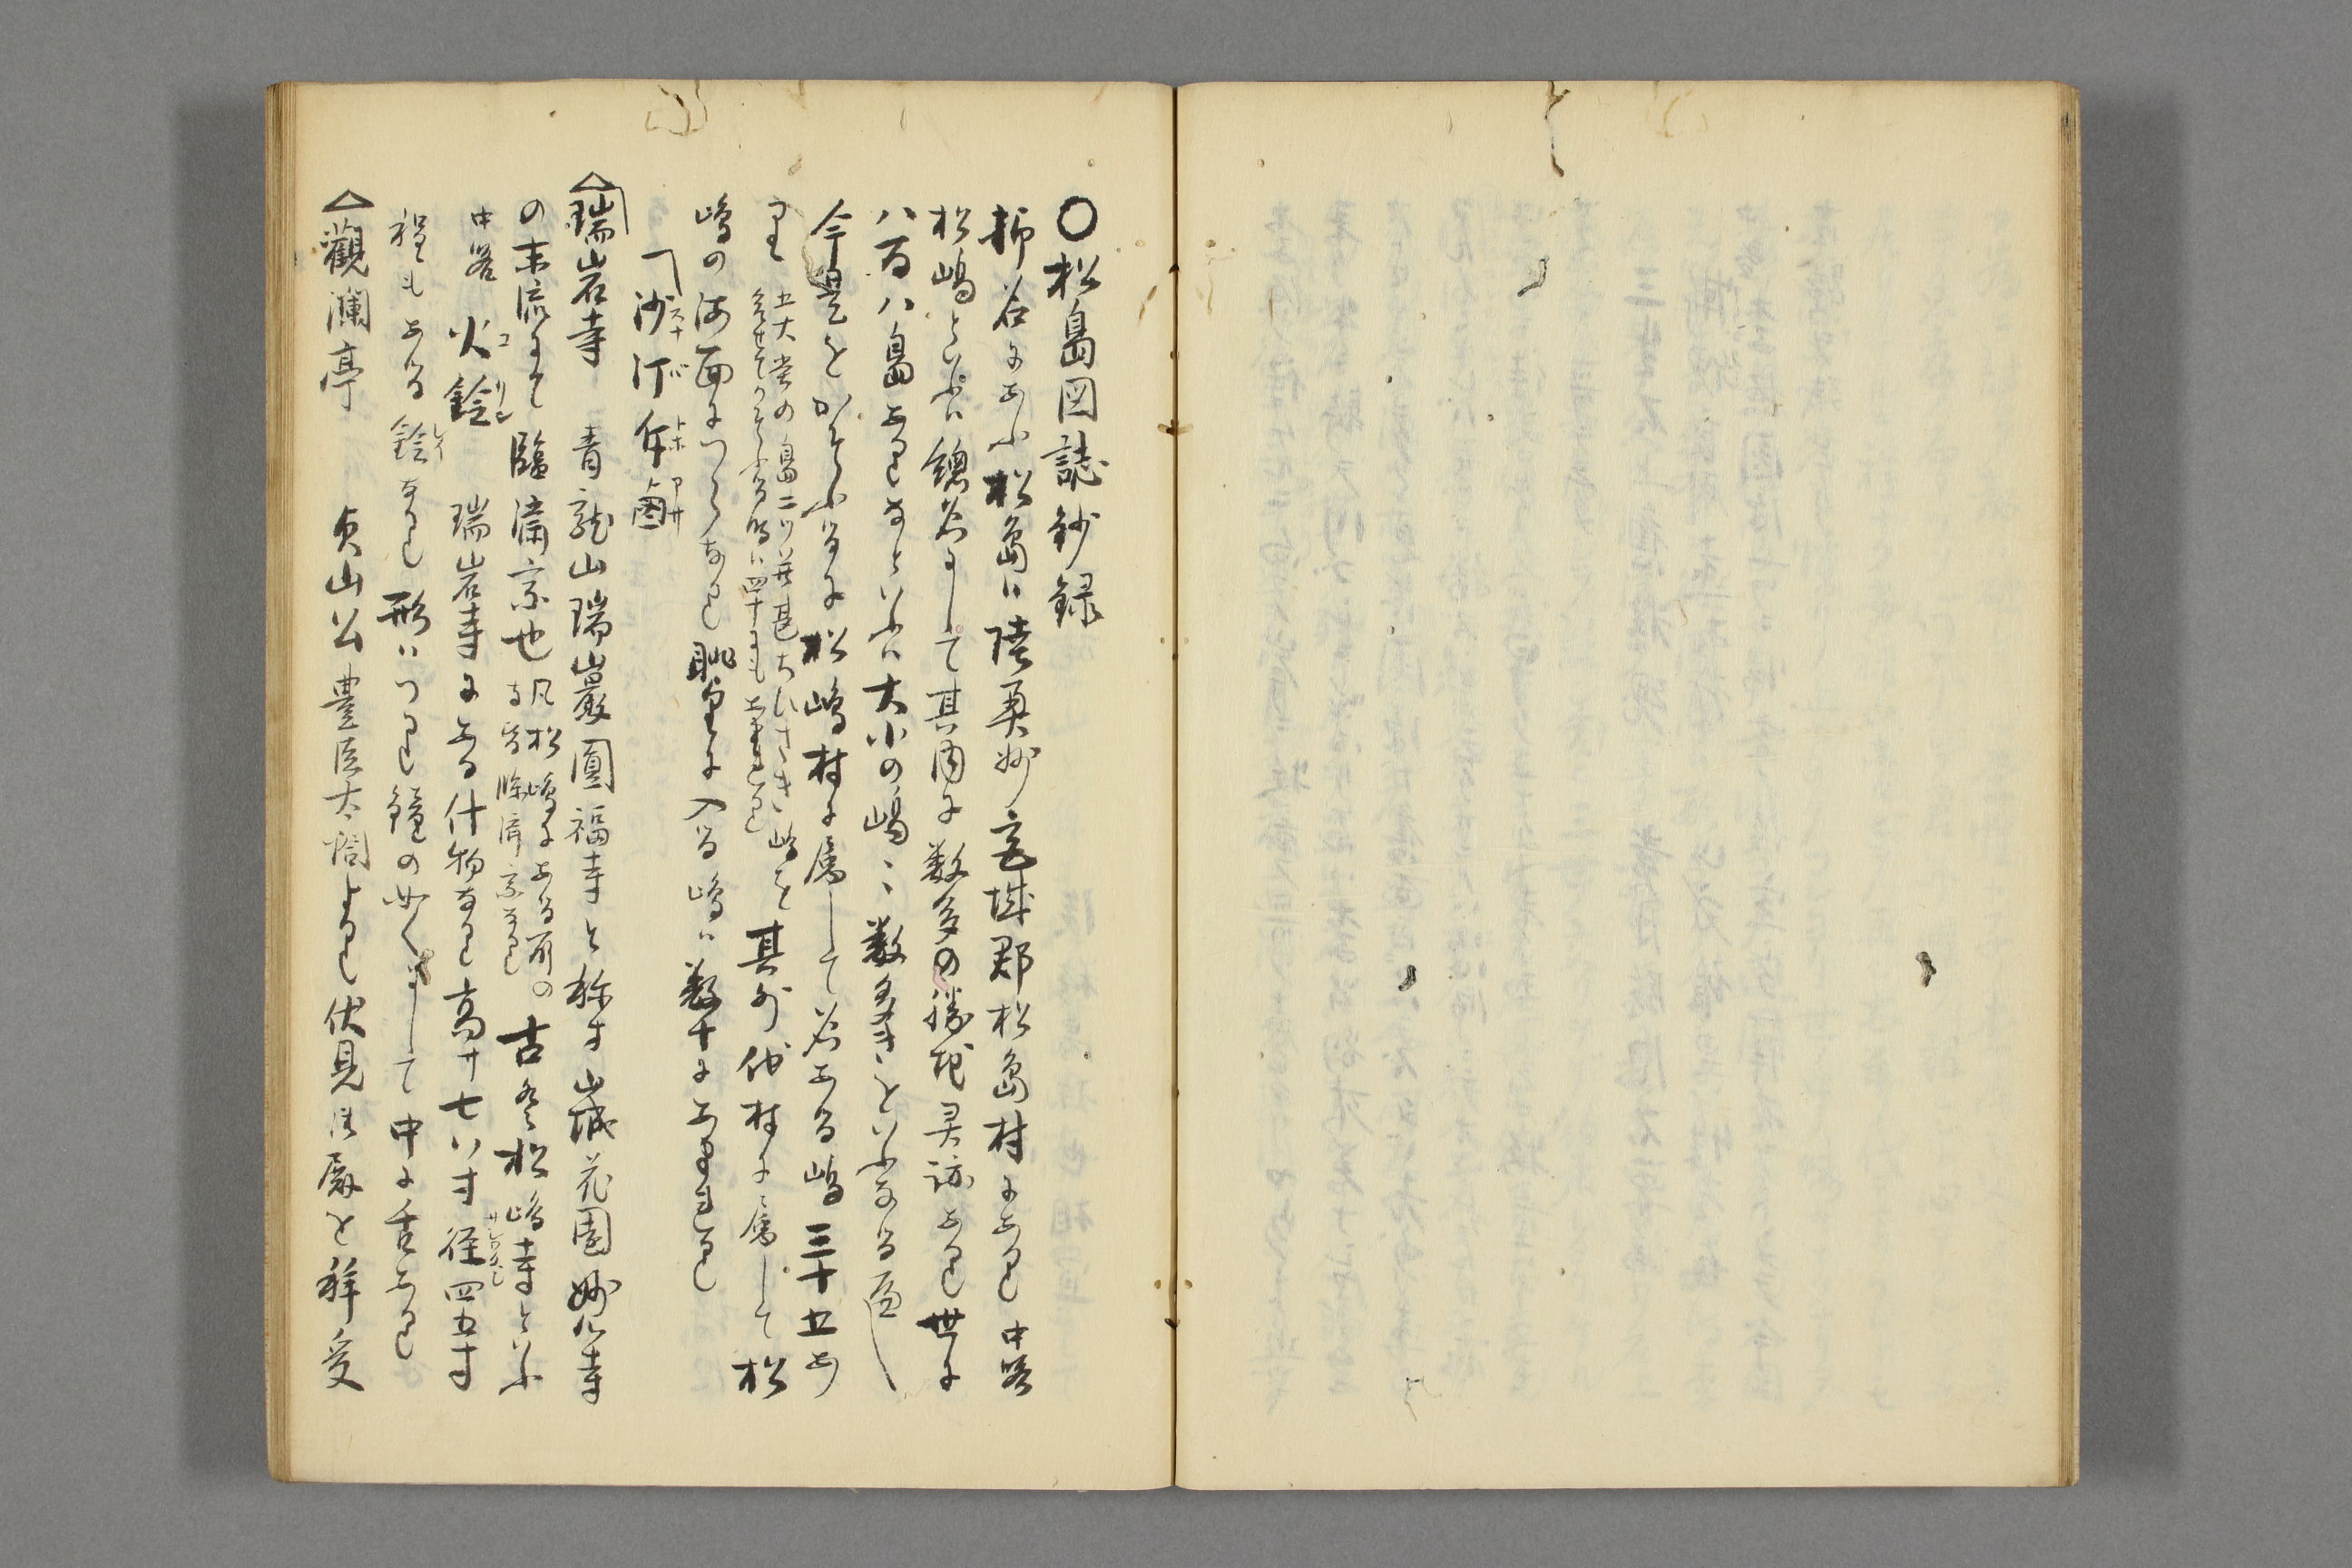 〇松島図誌鈔録
抑爰にあふ松島ハ陸奥州宮城郡松島村にあり中畧
松嶋といふハ総名にして其内に数多の勝地灵跡あり世に
八百八島ありなといふハ大小の嶋〻数多きをいふなる应し
今是をかそふるに松嶋村に属して名ある嶋三十五あ
り五大堂の島二ツ并甚ちいさき嶋を
合せてかそふる時ハ四十にもあまれり其外他村に属して松
嶋の海面につらなり眺望に入る嶋ハ数十にあまれり
沙汀年鹵
△瑞岩寺　青龍山瑞巌圓福寺と称す山城花園妙心寺
の末流にて臨済宗也凡松嶋にある所の
寺皆臨済宗なり古名松嶋寺といふ
中畧　火鈴　瑞岩寺にある什物なり高サ七八寸径四五寸
程もある鈴なり形ハつり鐘の如くにして中に舌あり
△觀瀾亭　貞山公豊臣太閤より伏見の殿を拜受